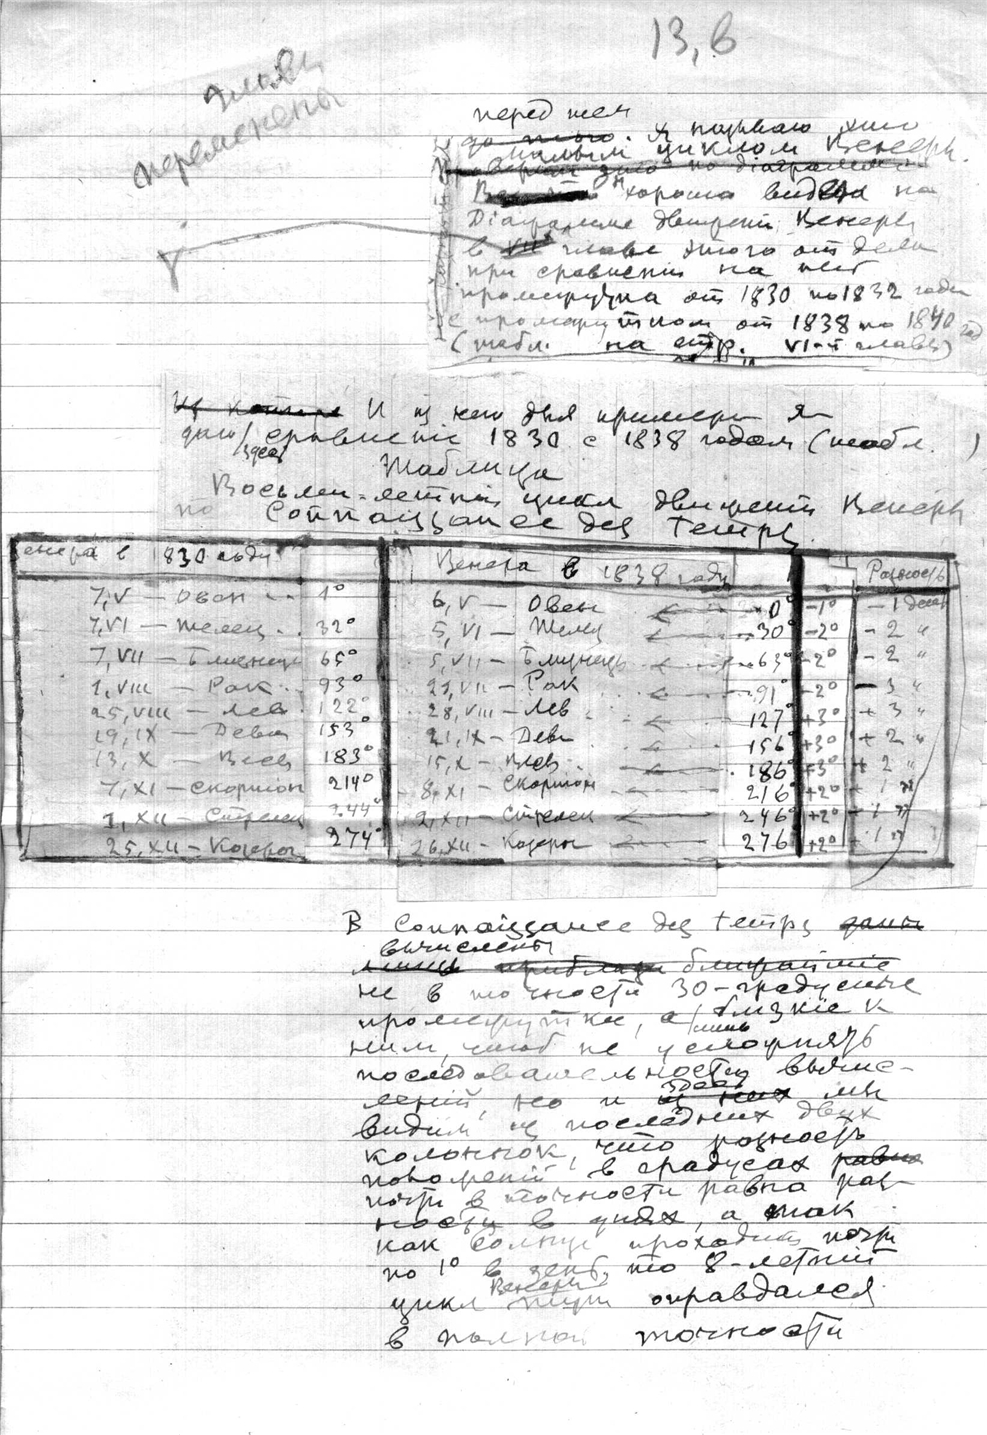 13, в
знаки
переменены
перед тем
до того. Я называю это
малым циклом Венеры.
Он хорошо виден на
Діаграмме движенія Венеры
в VII главе этого отдела
при сравненіи на ней
промежутка от 1830 по 1832 годы
с промежутком от 1838 по 1840 год
(табл. на стр. VI-й главы)
И из него для примера я
даю здесь сравненіе 1830 с 1838 годом (табл. )
Таблица
Восьми-летній цикл движенія Венеры
по Connaissance des temps.
Венера в 1830 году Венера в 1838 году Разность
7,V — Овен 1° 6,V — Овен 0° -1° -1 день
7,VI — Телец 32° 5,VI — Телец 30° -2° -2 "
7,VII — Близнецы 65° 5,VII — Близнецы 63° -2° -2 "
1,VIII — Рак 93° 29,VII — Рак 91° -2° -3 "
25,VIII — Лев 122° 28,VIII — Лев 127° +3° +3 "
19,IX — Дева 153° 21,IX — Дева 156° +3° +2 "
13,X — Весы 183° 15,X — Весы 186° +3° +2 "
7,XI — Скорпіон 214° 8,XI — Скорпіон 216° +2° +1 "
1,XII — Стрелец 244° 2,XII — Стрелец 246° +2° +1 "
25,XII — Козерог 274° 26,XII — Козерог 276° +2° +1 "
В Connaissance des temps даны
вычислены
лишь ближайшіе
не в точности 30-градусные
промежутки, а лишь близкіе к
ним, чтоб не усложнять
последовательности вычис-
леній, но и здесь мы
видим из последних двух
колонок, что разность
положеній в градусах равна
почти в точности равна раз-
ности в днях, а так
как Солнце проходит почти
по 1° в день, то 8-летній
цикл Венеры оправдался
в полной точности